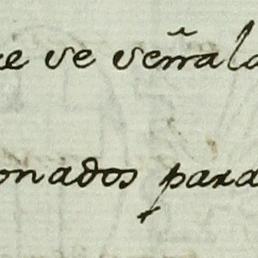 e se señala
onados para